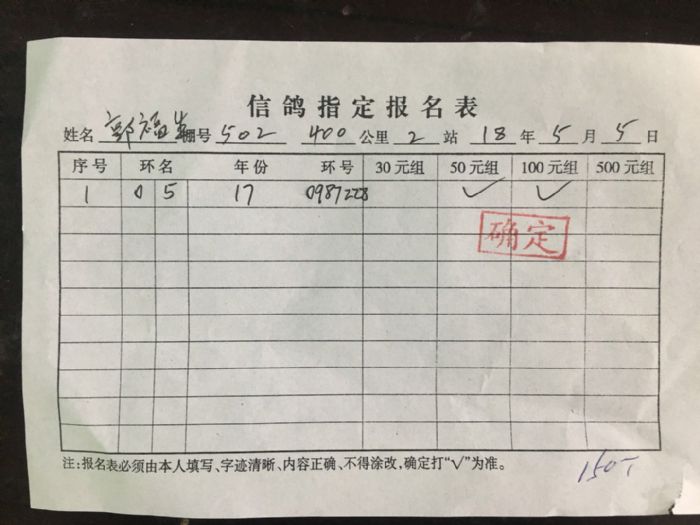 信鸽指定报名表
姓名 郭福生 棚号 502 400 公里 2 站 18 年 5 月 5 日
序号 环名 年份 环号 30元组 50元组 100元组 500元组
1 0 5 17 0987228 ✓ ✓
确定
注:报名表必须由本人填写、字迹清晰、内容正确、不得涂改,确定打“√”为准。
150